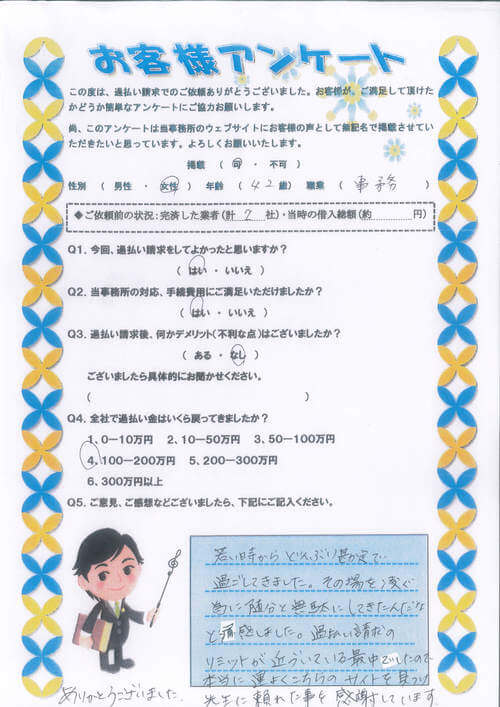 お客様アンケート
この度は、過払い請求でのご依頼ありがとうございました。お客様が、ご満足して頂けた
かどうか簡単なアンケートにご協力お願いします。
尚、このアンケートは当事務所のウェブサイトにお客様の声として無記名で掲載させてい
ただきたいと思っています。よろしくお願いいたします。
掲載 ( 可 ・ 不可 )
性別 ( 男性 ・ 女性 ) 年齢 ( 42 歳) 職業 ( 事務 )
◆ご依頼前の状況:完済した業者(計 2 社)・当時の借入総額(約 円)
Q1. 今回、過払い請求をしてよかったと思いますか?
( はい ・ いいえ )
Q2. 当事務所の対応、手続費用にご満足いただけましたか?
( はい ・ いいえ )
Q3. 過払い請求後、何かデメリット(不利な点)はございましたか?
( ある ・ なし )
ございましたら具体的にお聞かせください。
( )
Q4. 全社で過払い金はいくら戻ってきましたか?
1. 0-10万円 2. 10-50万円 3. 50-100万円
4. 100-200万円 5. 200-300万円
6. 300万円以上
Q5. ご意見、ご感想などございましたら、下記にご記入ください。
若い時から どんぶり勘定で
過ごしてきました。その場を凌ぐ
為に随分と無駄にしてきたんだな
と痛感しました。過払い請求の
リミットが近づいている最中でしたので
本当に運よくこちらの サイトを見つけ
先生に頼れた事を 感謝しています
ありがとうございました.